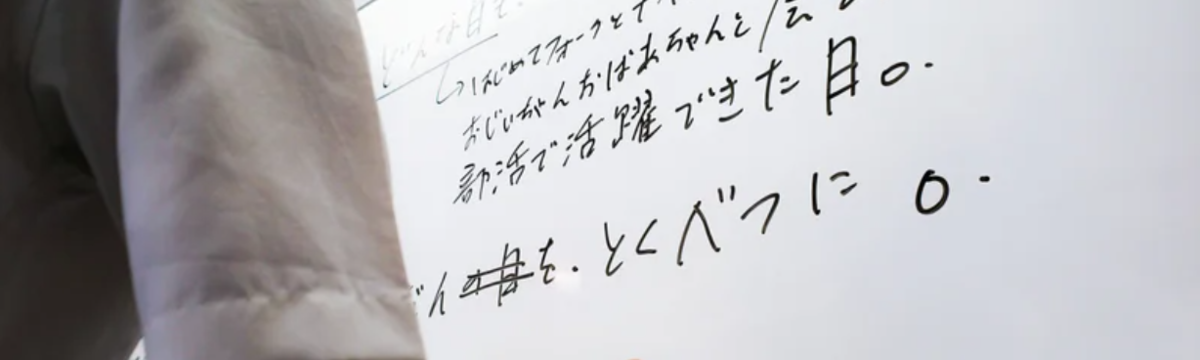 どんな日を.
↳はじめてフォークとナイ
おじいちゃんおばあちゃんと会
部活で活躍できた日。
を. とくべつに 0.